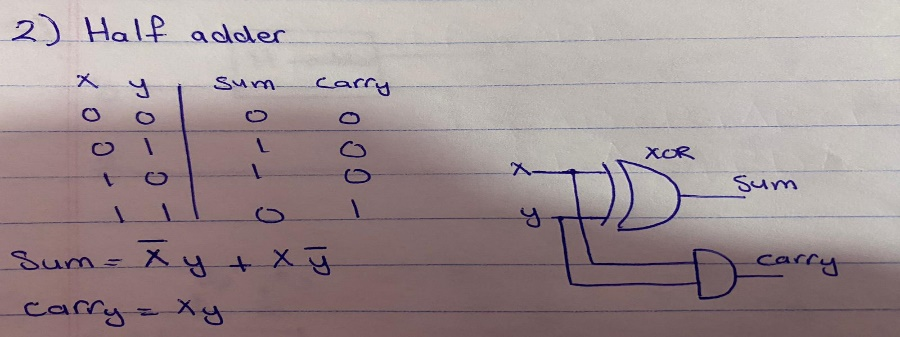 2) Half adder
x y sum carry
0 0 0 0
0 1 1 0
1 0 1 0
1 1 0 1
Sum = x̅ y + x y̅
carry = xy
XOR
x
sum
y
carry